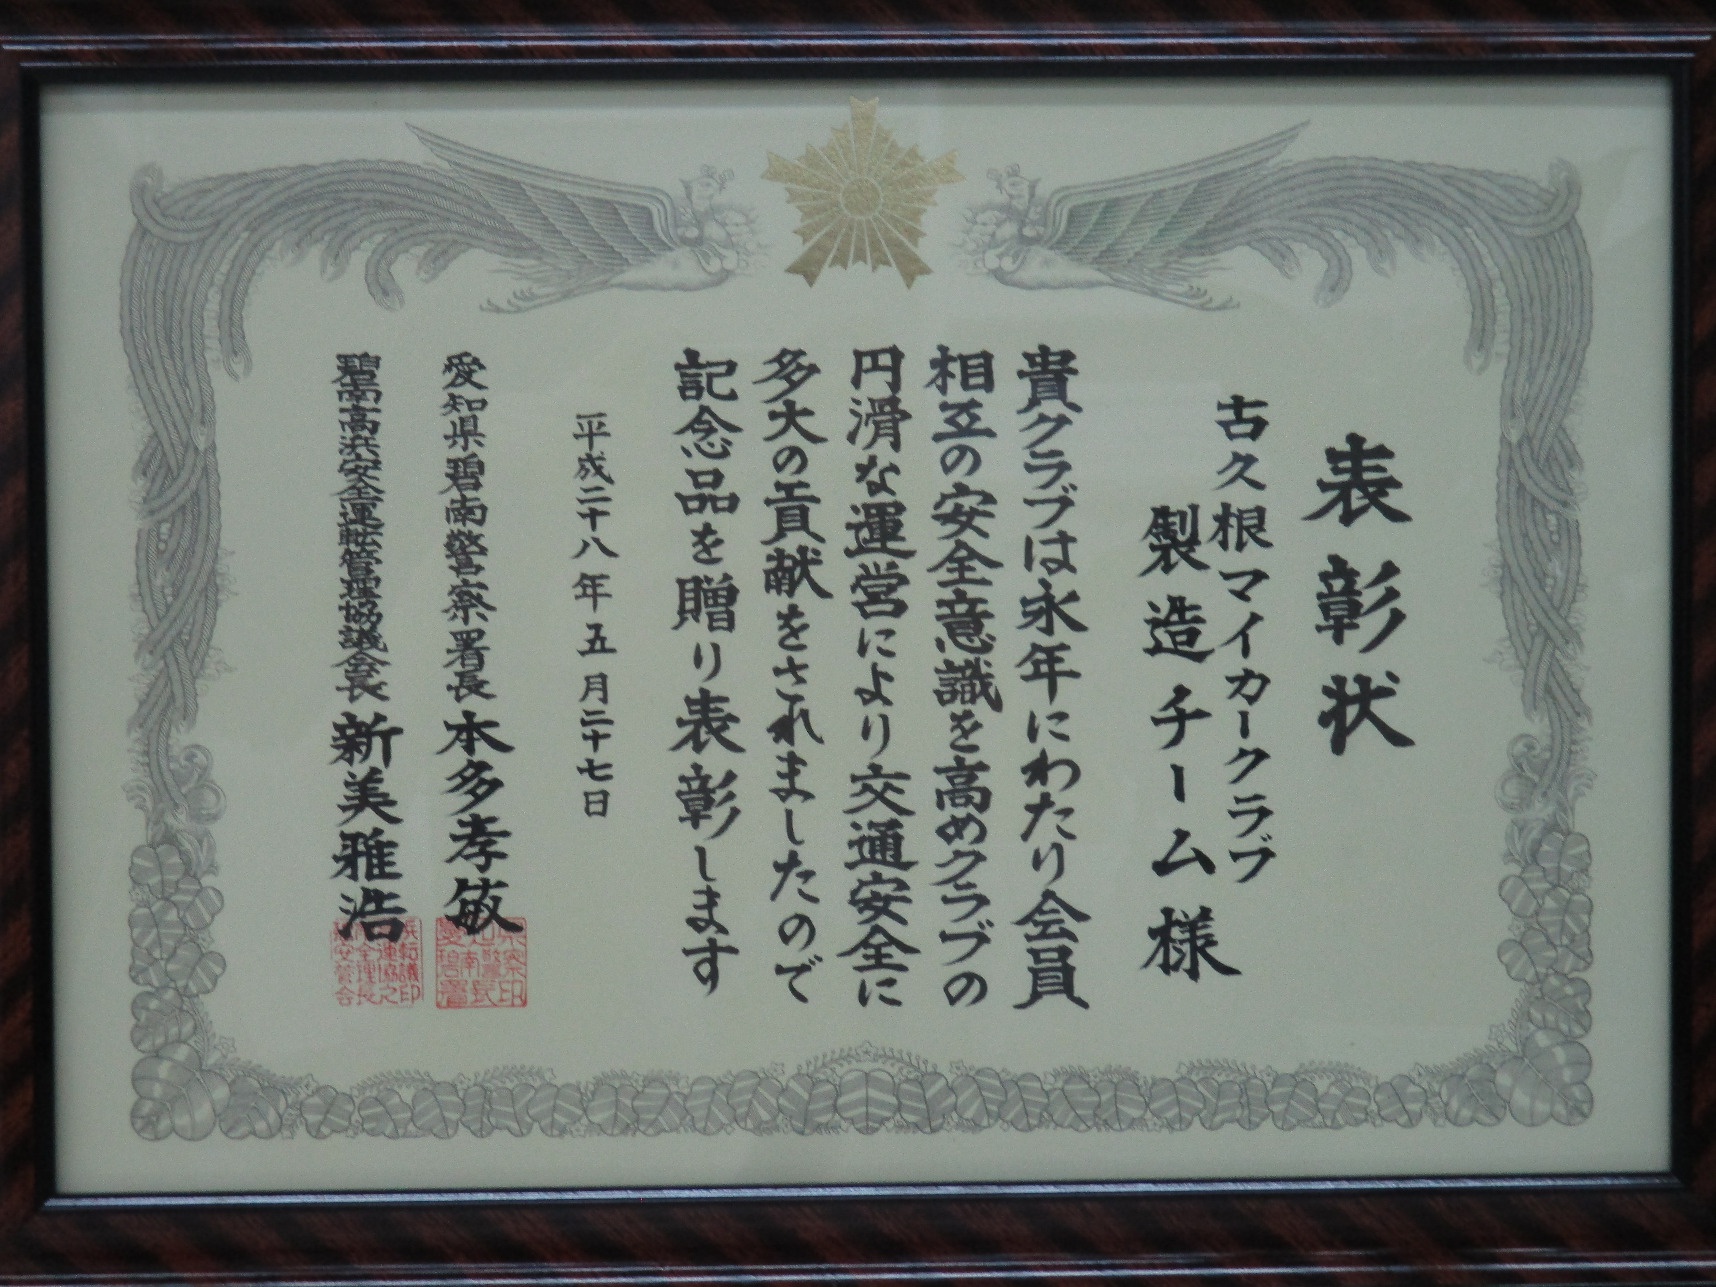 表彰状
古久根マイカークラブ
製造チーム様
貴クラブは永年にわたり会員
相互の安全意識を高めクラブの
円滑な運営により交通安全に
多大の貢献をされましたので
記念品を贈り表彰します
平成二十八年五月二十七日
愛知県碧南警察署長 本多孝敏
碧南高浜安全運転管理協議会長 新美雅浩